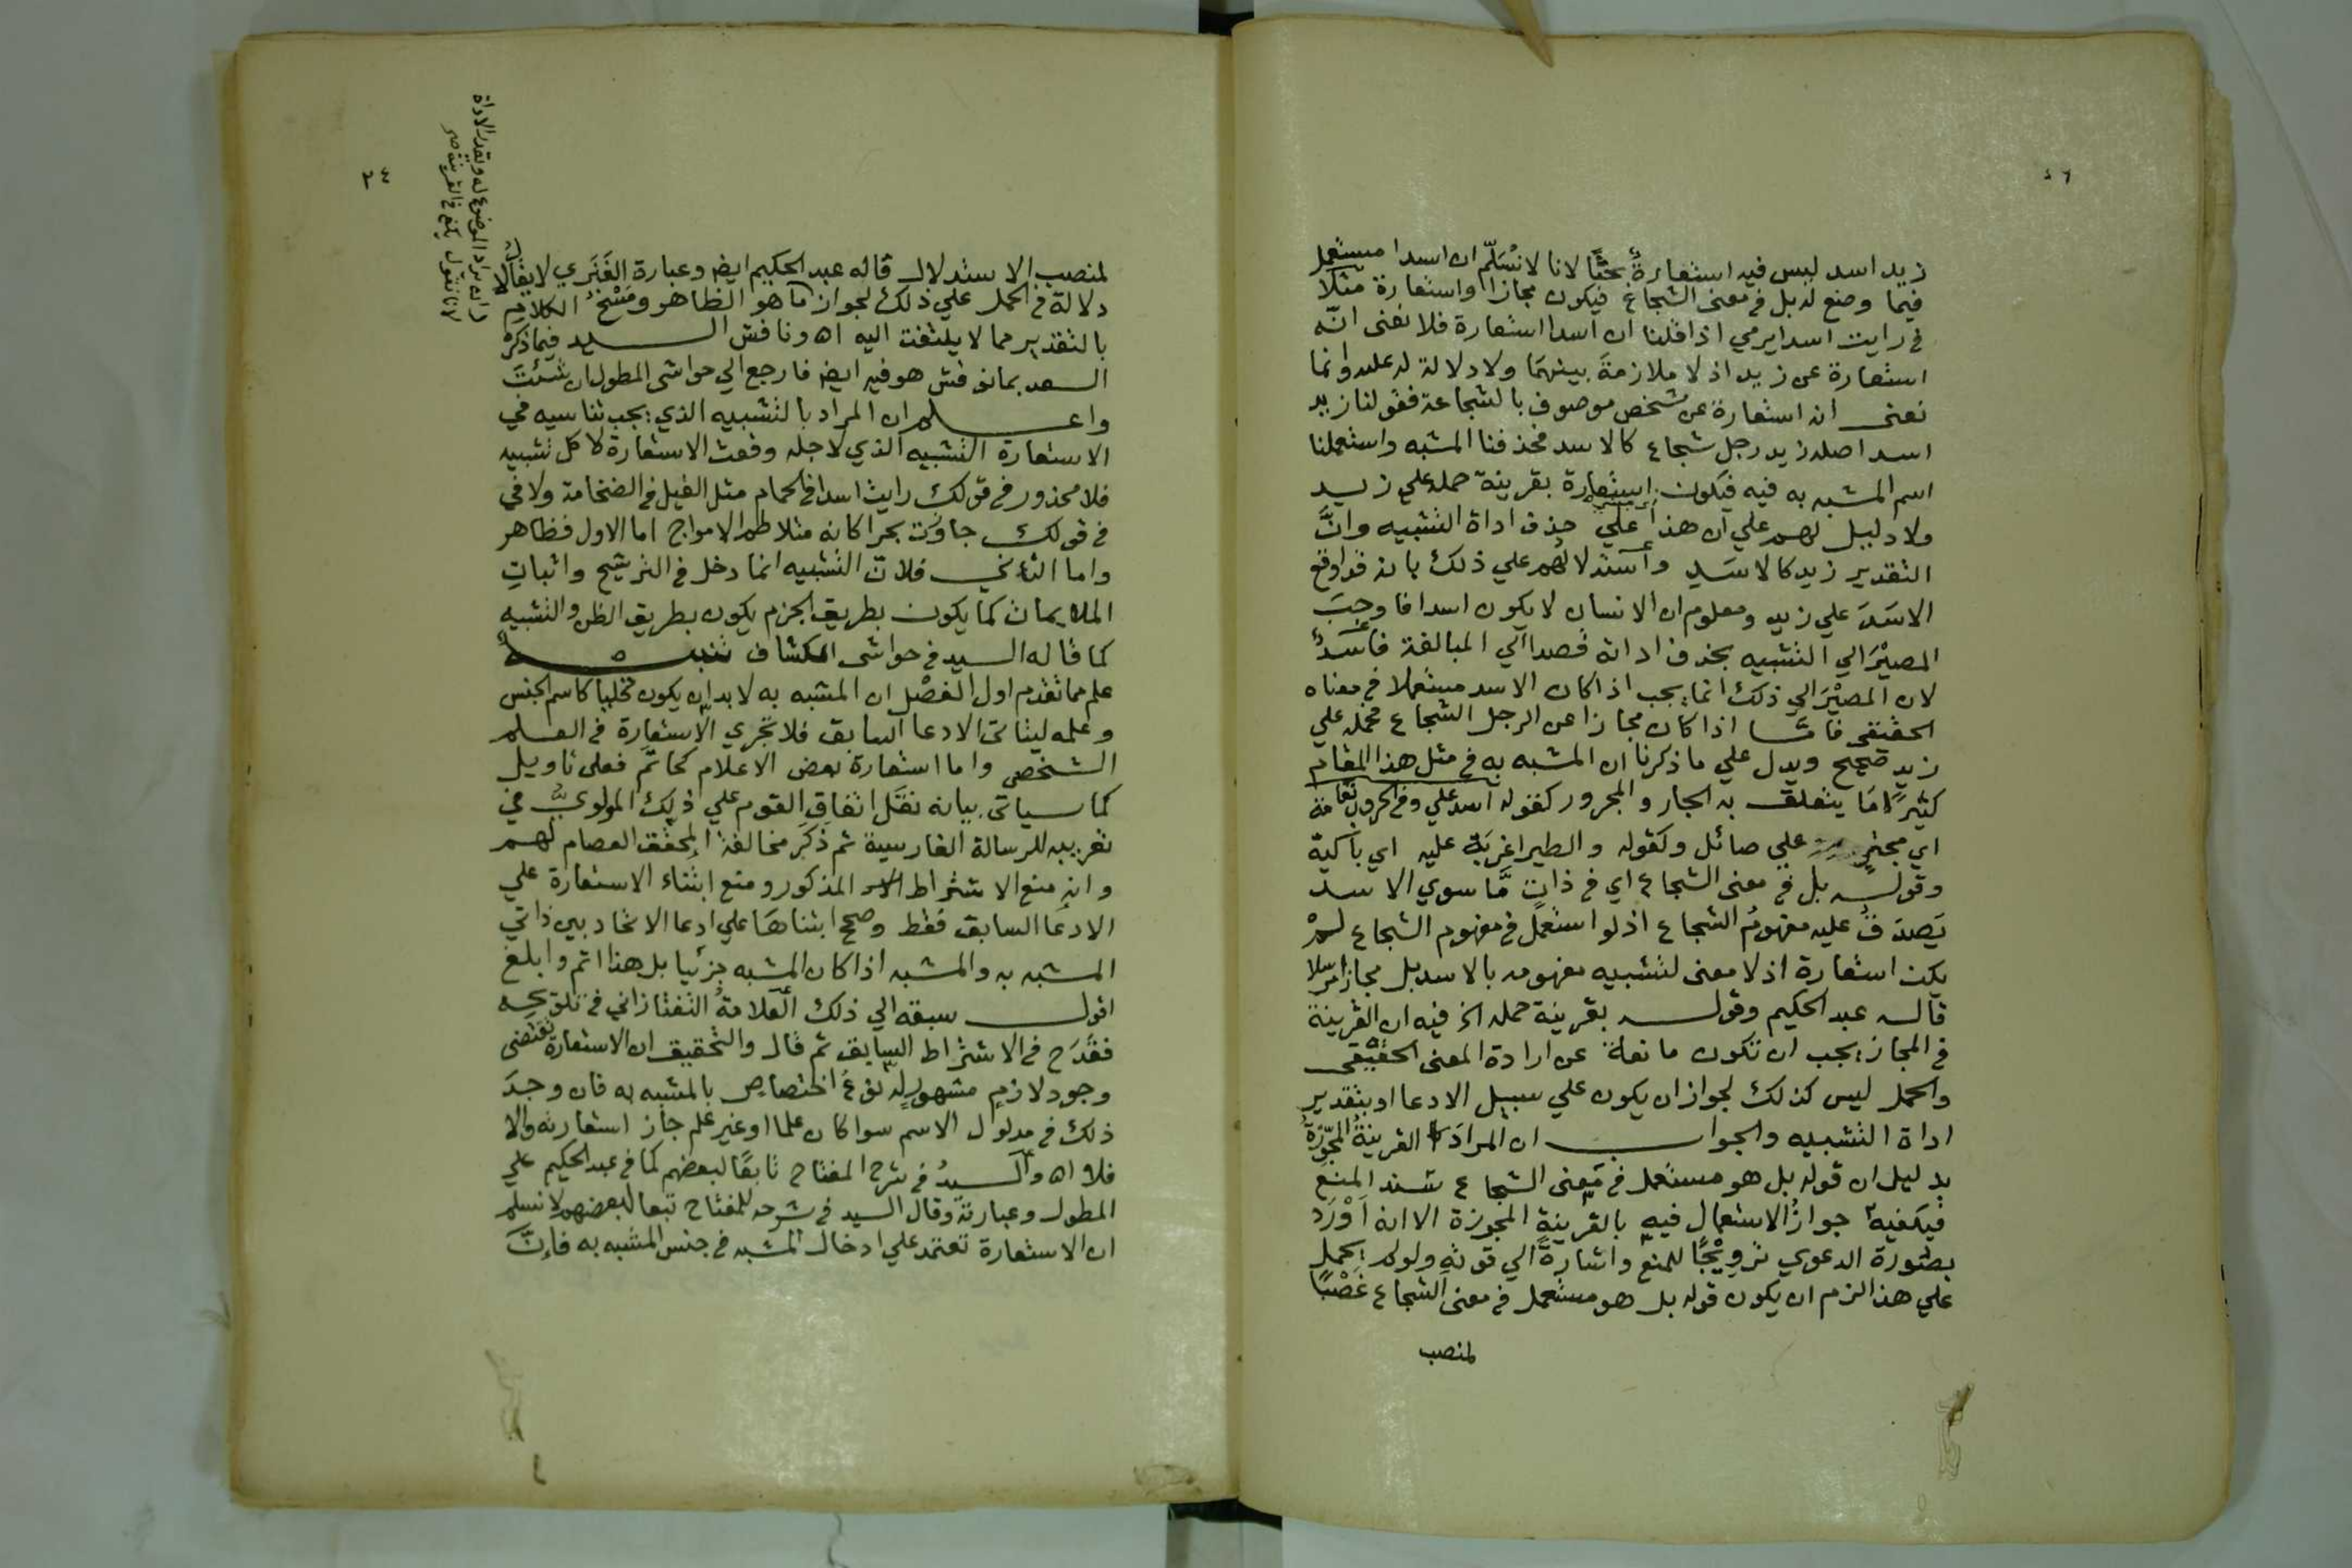 ٤٦
زيد اسد ليس فيه استعارةٌ بحثًا لانا لا نسَلّم ان اسدا مستعمل
فيما وضع له بل في معنى الشجاع فيكون مجازا واستعارة مثلا
في رايت اسدا يرمي اذا قلنا ان اسدا استعارة فلا نعنى انّه
استعارة عن زيد اذ لا ملازمةَ بينهمَا ولا دلالة له عليه وانما
نعنى انه استعارة عن شخص موصوف بالشجاعة فقولنا زيد
اسد اصله زيد رجل شجاع كالاسد فحذفنا المشبه واستعملنا
اسم المشبه به فيه فيكون استعارة بقرينة حمله علي زيد
ولا دليل لهم علي ان هذا علي حذف اداة التشبيه وانَّ
التقدير زيد كالاسَدِ واستدلالهُم علي ذلك بانه قد اوقع
الاسَدَ علي زيد ومعلوم ان الانسان لا يكون اسدا فاوجبَ
المصيْرَ الي التشبيه بحذف اداته قصدا الي المبالغة فاسَدٌ
لان المصيْرَ الي ذلك انما يجب اذا كان الاسد مستعملا في معناه
الحقيقى فامّا اذا كان مجازا عن الرجل الشجاع فحمله علي
زيد صحيح ويدل علي ما ذكرنا ان المشبه به في مثل هذا المقام
كثيرًا مَا يتعلق به الجار والمجرور كقوله اسد علي وفي الحروب نعامة
اي مجترئ علي صائل وكقوله والطير اغربَة عليه اي باكية
وقوله بل في معنى الشجاع اي في ذاتٍ مَّا سوي الاسد
يَصدَقُ عليه مفهومُ الشجاع اذ لو استعمل في مفهوم الشجاع لمْ
يكن استعارة اذ لا معنى لتشبيه مفهومه بالاسد بل مجازا مرسلا
قاله عبد الحكيم وقوله بقرينة حمله الخ فيه ان القرينة
في المجاز يجب ان تكون مانعة عن ارادة المعنى الحقيقى
والحمل ليس كذلك لجواز ان يكون علي سبيل الادعا او بتقدير
اداة التشبيه والجواب ان المرادَ القرينةُ المجوّزةُ
بدليل ان قوله بل هو مستعمل في مَعنى الشجاع سَند المنع
فيكفيه جوازُ الاستعمال فيه بالقرينةِ المجوزة الا انه اَوْرَدَ
بصُورة الدعوي ترويْجًا للمنع واشارةً الي قوته ولو لم يحمل
علي هذا لزم ان يكون قوله بل هو مستعمل في معنى الشجاع غَصْبًا
لمنصب
٢٤
لمنصب الاستدلال قاله عبد الحكيم ايضا وعبارة الفَنَري لا يقال لا
دلالة في الحمل علي ذلك لجواز ما هو الظاهر ومَسْخُ الكلام
بالتقدير مما لا يلتفت اليه اه ونافش السيد فيما ذكرهُ
السعد بما نوفش هو فيه ايضا فارجع الي حواشى المطول ان شئتَ
واعلم ان المراد بالتشبيه الذي يجب تناسيه في
الاستعارة التشبيه الذي لاجله وقعت الاستعارة لا كل تشبيه
فلا محذور في قولك رايت اسدا في الحمام مثل الفيل في الضخامة ولا في
في قولك جاوَرْت بحرا كانه متلاطم الامواج اما الاول فظاهر
واما الثاني فلانّ التشبيه انما دخل في الترشيح واثباتِ
الملايمات كما يكون بطريق الجزم يكون بطريق الظن والتشبيه
كما قاله السيد في حواشى الكشاف تنبيه
علم مما تقدم اول الفصْل ان المشبه به لا بد ان يكون كليًا كاسم الجنس
وعلمه ليتاتى الادعا السابق فلا تجري الاستعارة في العلم
الشخصى واما استعارة بعض الاعلام كحاتَم فعلى تاويل
كما سياتى بيانه نقَل اتفاقَ القوم علي ذلك المولويُّ في
تعريبه للرسالة الفارسية ثم ذكَرَ مخالفةَ المحقق العصام لهم
وانه منع الاشتراط المذكور ومنع ابتناء الاستعارة علي
الادعَا السابق فقط وصحح ابتناهَا علي ادعا الاتحاد بين ذاتي
المشبه به والمشبه اذا كان المشبه جزئيا بل هذا اتم وابلغ
اقول سبقه الي ذلك العلامةُ التفتازاني في تلويحه
فقَدَح في الاشتراط السابق ثم قال والتحقيق ان الاستعارة تقتضى
وجود لازمٍ مشهورٍ له نوعُ اختصاصٍ بالمشبه به فان وجدَ
ذلك في مدلول الاسم سوا كان علما او غير علم جاز استعارته والا
فلا اه والسيدُ في شرح المفتاح تابعًا لبعضهم كما في عبد الحكيم علي
المطول وعبارته وقال السيد في شرحه للمفتاح تبعا لبعضهم لا نسلم
ان الاستعارة تعتمد علي ادخال المشبه في جنس المشبه به فانَّ
ان يراد الموضوع له ويقدر الاداة
لانا نقول يكفى في القرينة